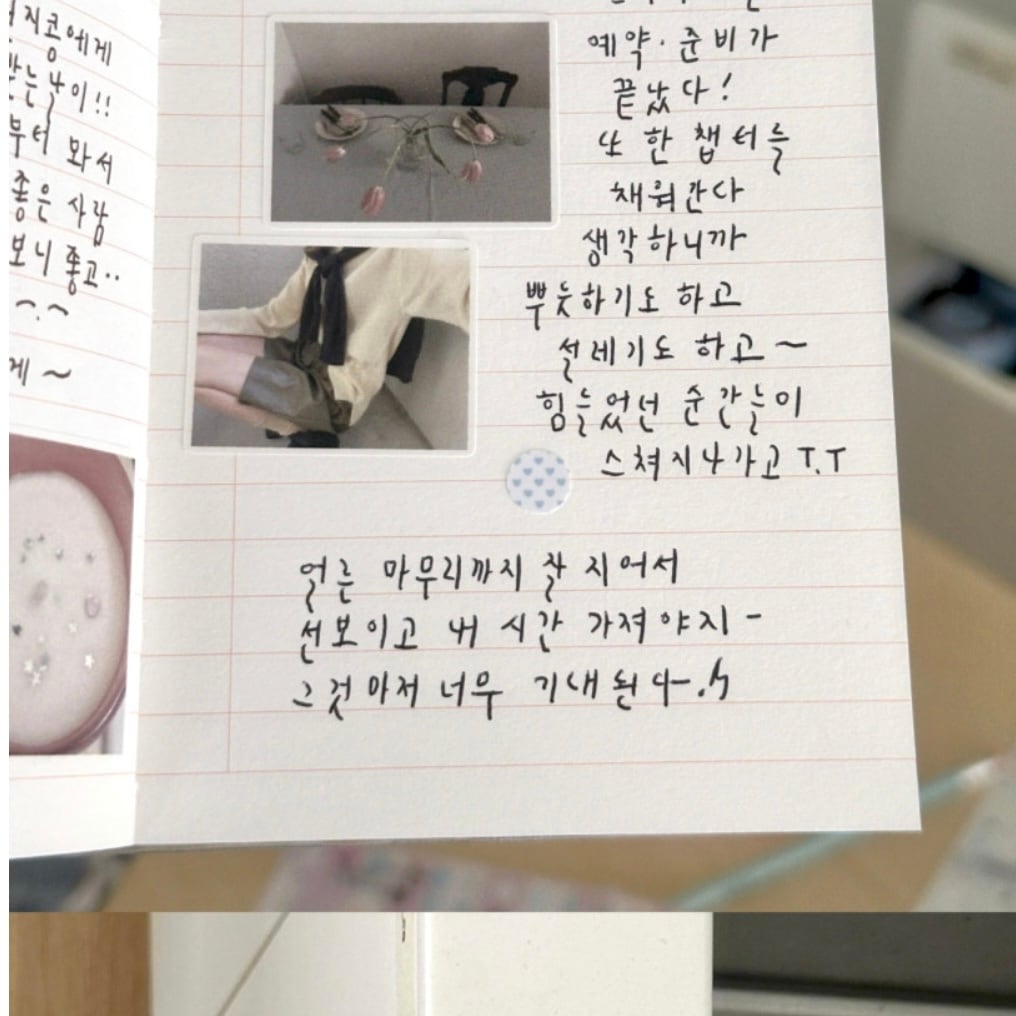 지콩에게
는날이!!
부터 봐서
좋은 사람
보니 좋고..
게~
예약·준비가
끝났다!
또 한 챕터를
채워간다
생각하니까
뿌듯하기도 하고
설레기도 하고~
힘들었던 순간들이
스쳐지나가고 T.T
얼른 마무리까지 잘 지어서
선보이고 내 시간 가져야지-
그것마저 너무 기대된다